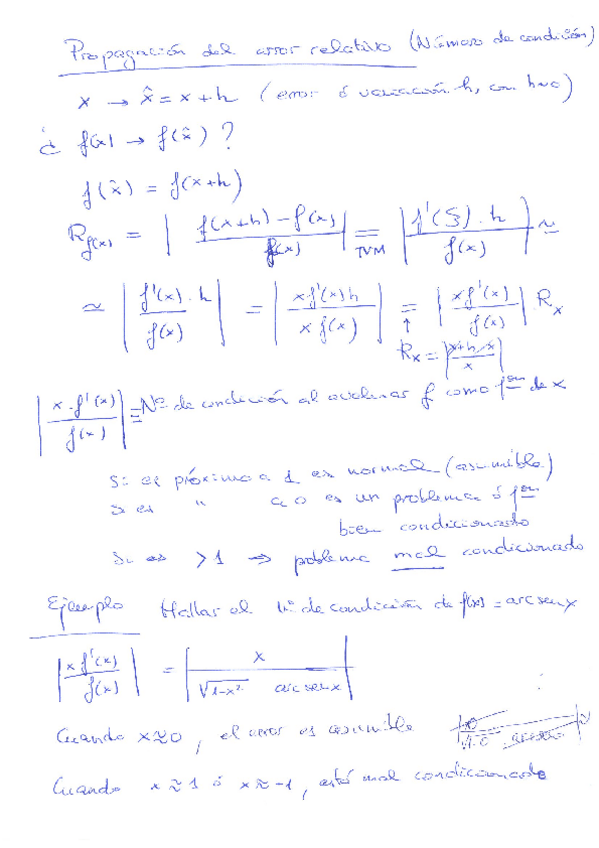 Propagación del error relativo (Número de condición)
x → x̂ = x + h (error ó variación h, con h≈0)
¿ f(x) → f(x̂) ?
f(x̂) = f(x+h)
R_f(x) = | (f(x+h) - f(x)) / f(x) | =_TVM | (f'(ξ) · h) / f(x) | ≃
≃ | (f'(x) · h) / f(x) | = | (x f'(x) h) / (x f(x)) | = | (x f'(x)) / f(x) | R_x
↑
R_x = | (x+h-x) / x |
| (x · f'(x)) / f(x) | = Nº de condición al evaluar f como fᵒⁿ de x
Si es próximo a 1 es normal (asumible)
Si es " a 0 es un problema ó fᵒⁿ
bien condicionado
Si es > 1 ⇒ problema mal condicionado
Ejemplo Hallar el nº de condición de f(x) = arcsenx
| (x f'(x)) / f(x) | = | x / (√(1-x²) arcsenx) |
Cuando x≈0, el error es asumible
Cuando x≈1 ó x≈-1, está mal condicionado